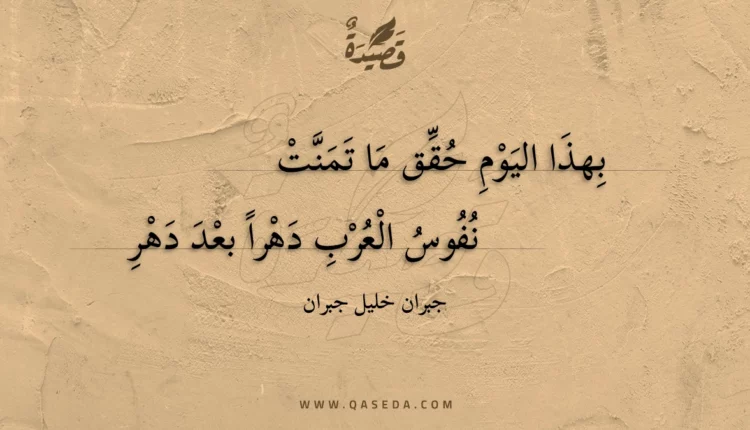 قَصِيدَةٌ
بِهذَا اليَوْمِ حُقِّق مَا تَمَنَّتْ
نُفُوسُ الْعُرْبِ دَهْراً بعْدَ دَهْرِ
جبران خليل جبران
WWW.QASEDA.COM